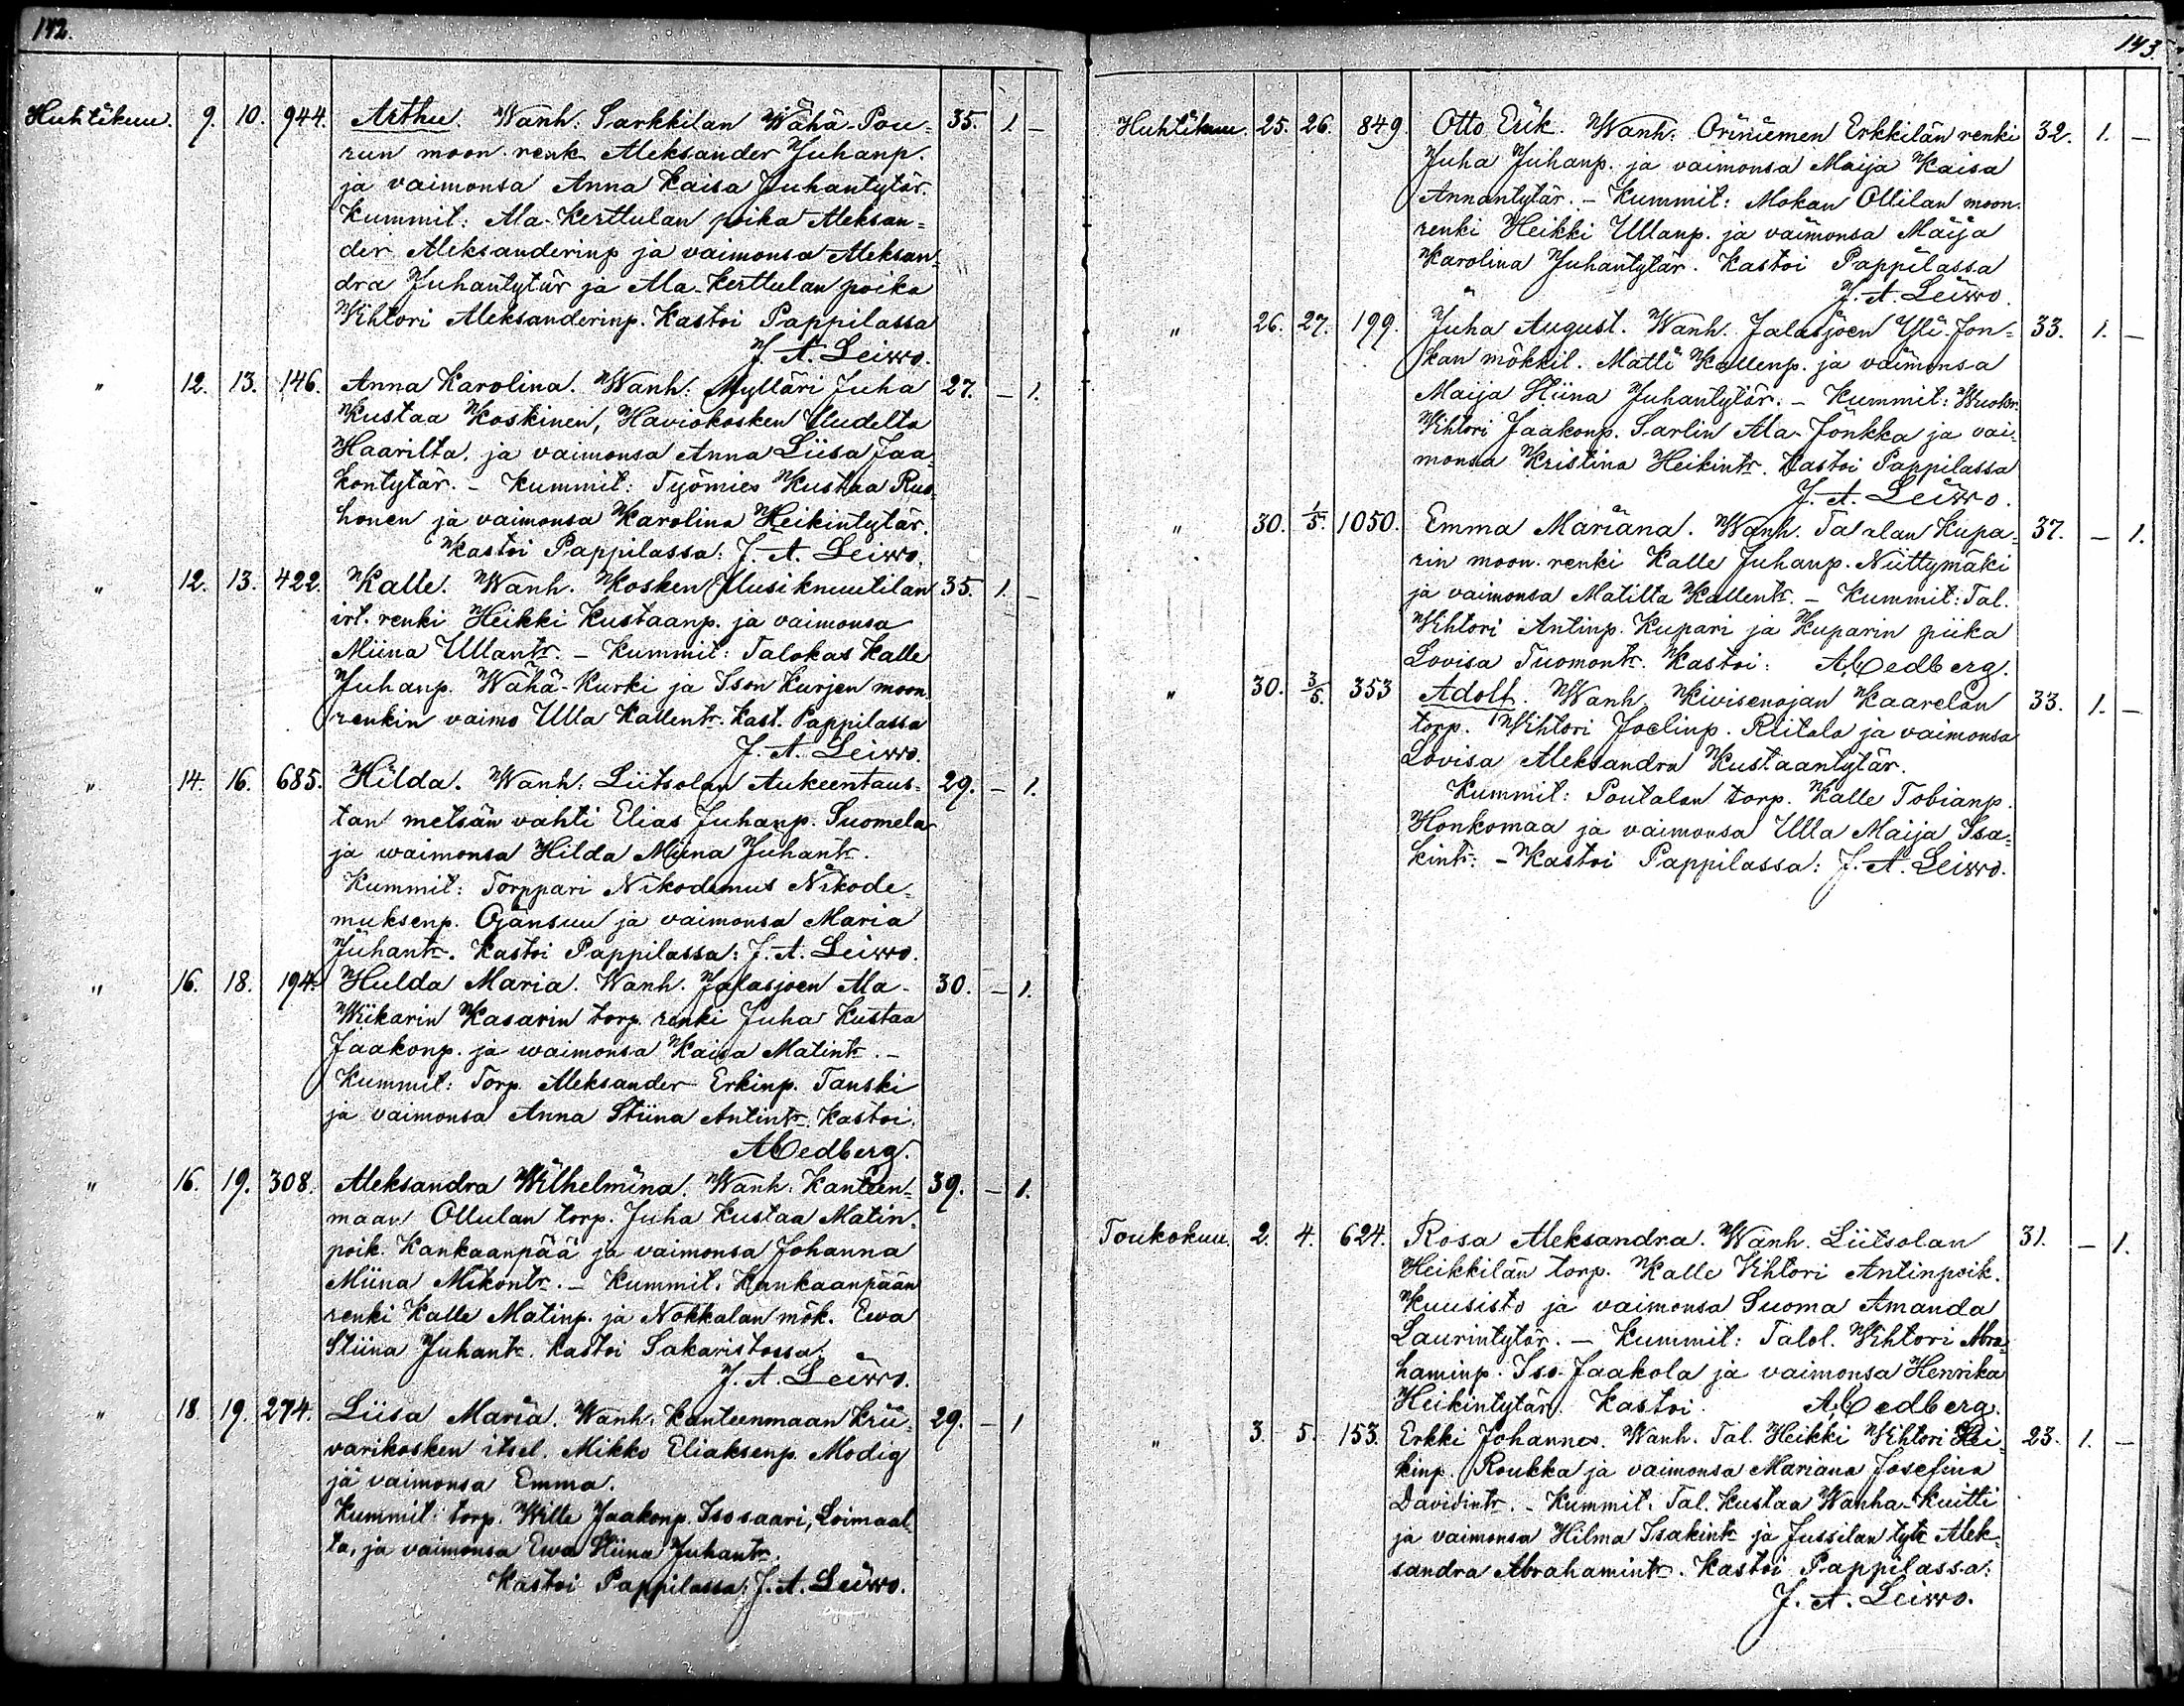 142.
Huhtikuu. 9. 10. 944. Arthu. Wanh: Sarkkilan Wähä-Pou- 35. 1. –
run moon. renk. Aleksander Juhanp.
ja vaimonsa Anna Kaisa Juhantytär.
Kummit: Ala-Kerttulan poika Aleksan-
der Aleksanderinp ja vaimonsa Aleksan-
dra Juhantytär ja Ala-Kerttulan poika
Wihtori Aleksanderinp. Kastoi Pappilassa
J. A. Leiwo.
" 12. 13. 146. Anna Karolina. Wanh: Mylläri Juha 27. – 1.
Kustaa Koskinen, Haviokosken Uudelta
Haarilta, ja vaimonsa Anna Liisa Jaa-
kontytär. – Kummit: Työmies Kustaa Ruo-
honen ja vaimonsa Karolina Heikintytär.
Kastoi Pappilassa: J. A. Leiwo.
" 12. 13. 422. Kalle. Wanh. Kosken Uusiknuutilan 35. 1. –
irt. renki Heikki Kustaanp. ja vaimonsa
Miina Ullantr. – Kummit: Talokas Kalle
Juhanp. Wähä-Kurki ja Ison Kurjen moon.
renkin vaimo Ulla Kallentr. Kast. Pappilassa
J. A. Leiwo.
" 14. 16. 685. Hilda. Wanh: Liitsolan Aukeentaus- 29. – 1.
tan metsän vahti Elias Juhanp. Suomela
ja waimonsa Hilda Miina Juhantr.
Kummit: Torppari Nikodemus Nikode-
muksenp. Ojansuu ja vaimonsa Maria
Juhantr. Kastoi Pappilassa: J. A. Leiwo.
" 16. 18. 194. Hulda Maria. Wanh. Jalasjoen Ala- 30. – 1.
Wiikarin Kasarin torp. renki Juha Kustaa
Jaakonp. ja waimonsa Kaisa Matintr. –
Kummit: Torp. Aleksander Erkinp. Tanski
ja vaimonsa Anna Stiina Antintr. Kastoi.
A Cedberg.
" 16. 19. 308. Aleksandra Wilhelmina. Wanh. Kanteen- 39. – 1.
maan Ollulan torp. Juha Kustaa Matin-
poik. Kankaanpää ja vaimonsa Johanna
Miina Mikontr. – Kummit. Kankaanpään
renki Kalle Matinp. ja Nokkalan mök. Ewa
Stiina Juhantr. Kastoi Sakaristossa:
J. A. Leiwo.
" 18. 19. 274. Liisa Maria. Wanh. Kanteenmaan Krii- 29. – 1
varikosken itsel. Mikko Eliaksenp. Modig
ja vaimonsa Emma.
Kummit: torp. Wille Jaakonp. Isosaari, Loimaal-
ta, ja vaimonsa Ewa Stiina Juhantr.
Kastoi Pappilassa: J. A. Leiwo.
143.
Huhtikuu. 25. 26. 849. Otto Erik. Wanh: Oriniemen Erkkilän renki 32. 1. –
Juha Juhanp. ja vaimonsa Maija Kaisa
Annantytär. – Kummit: Mokan Ollilan moon.
renki Heikki Ullanp. ja vaimonsa Maija
Karolina Juhantytär. Kastoi Pappilassa
J. A. Leiwo.
" 26. 27. 199. Juha August. Wanh. Jalasjoen Yli-Jon- 33. 1. –
kan mökkil. Matti Kallenp. ja vaimonsa
Maija Stiina Juhantytär. – Kummit: Wuokr.
Wihtori Jaakonp. Sarlin Ala-Jonkka ja vai-
monsa Kristina Heikintr. Kastoi Pappilassa
J. A. Leiwo.
" 30. 1/5. 1050. Emma Mariana. Wanh. Talalan Kupa- 37. – 1.
rin moon. renki Kalle Juhanp. Niittymäki
ja vaimonsa Matilta Kallentr. – Kummit: Tal.
Wihtori Antinp. Kupari ja Kuparin piika
Lovisa Tuomontr. Kastoi: A Cedberg.
" 30. 3/5. 353 Adolf. Wanh Kivisenojan Kaarelan 33. 1. –
torp. Wihtori Joelinp. Riitala ja vaimonsa
Lovisa Aleksandra Kustaantytär.
Kummit: Poutalan torp. Kalle Tobianp.
Honkomaa ja vaimonsa Ulla Maija Isa-
kintr: – Kastoi Pappilassa: J. A. Leiwo.
Toukokuu. 2. 4. 624. Rosa Aleksandra. Wanh. Liitsolan 31. – 1.
Heikkilän torp. Kalle Vihtori Antinpoik.
Kuusisto ja vaimonsa Suoma Amanda
Laurintytär. – Kummit: Talol. Wihtori Abra-
haminp. Iso-Jaakola ja vaimonsa Henrika
Heikintytär. Kastoi. A Cedberg.
" 3. 5. 153. Erkki Johannes. Wanh. Tal. Heikki Wihtori Hei- 23. 1. –
kinp. Roukka ja vaimonsa Mariana Josefina
Davidintr. – Kummit. Tal. Kustaa Wanha-Kuitti
ja vaimonsa Hilma Isakintr ja Jussilan tytr Alek-
sandra Abrahamintr. Kastoi Pappilassa:
J. A. Leiwo.